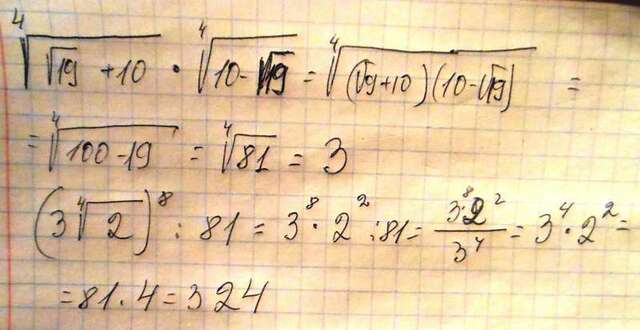 ⁴√(√19 + 10) · ⁴√(10 - √19) = ⁴√((√19 + 10)(10 - √19)) =
= ⁴√(100 - 19) = ⁴√81 = 3
(3 ⁴√2)⁸ : 81 = 3⁸ · 2² : 81 = (3⁸ · 2²)/3⁴ = 3⁴ · 2² =
= 81 · 4 = 324